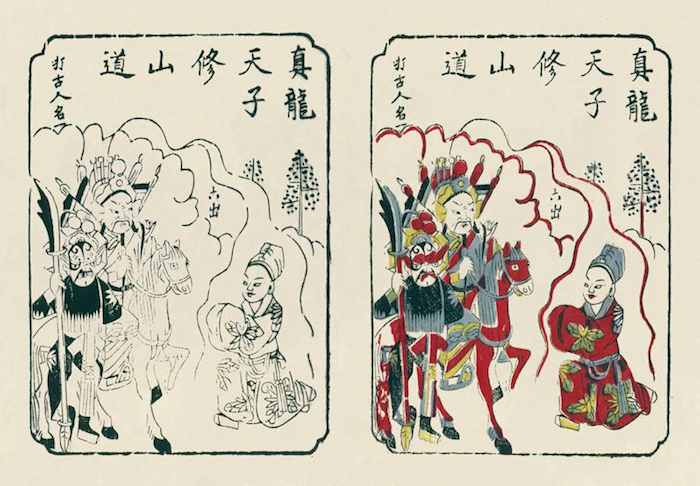 真龍
天子
修
山
道
打古人名
六出
真龍
天子
修
山
道
打古人名
六出